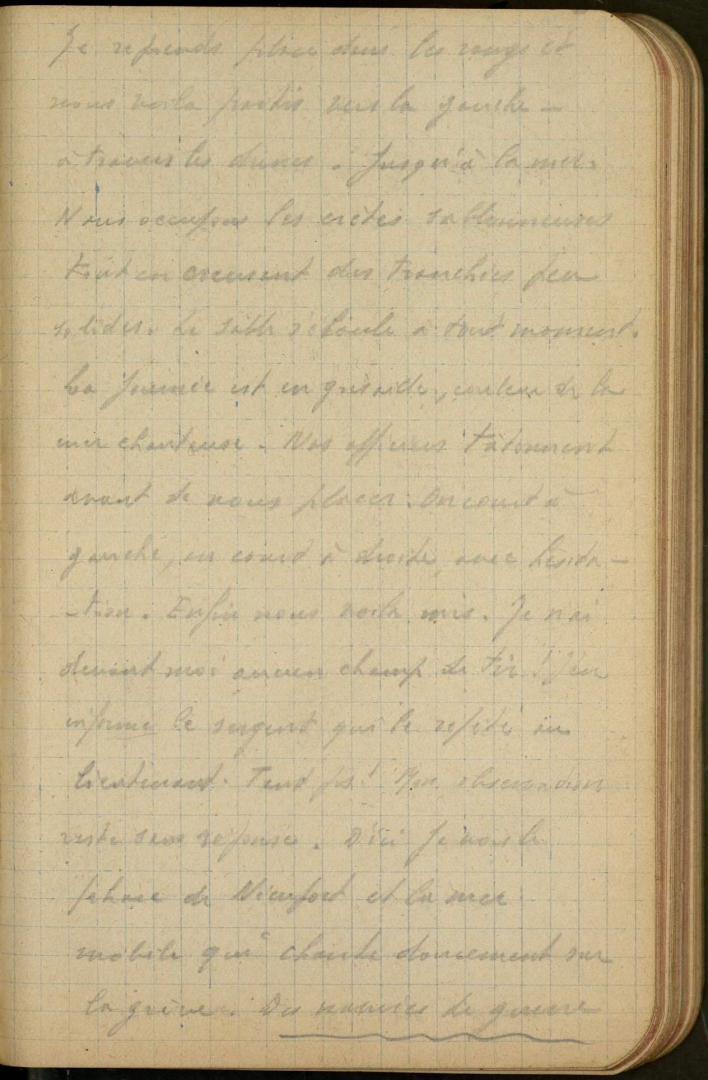 Je reprends place dans les rangs et
nous voila partis vers la gauche –
à travers les dunes. Jusqu'à la mer.
Nous occupons les crêtes sablonneuses
tout en creusant des tranchées peu
solides. Le sable s'éboule à tout moment.
La journée est en grisaille, couleur de la
mer chanteuse. Nos officiers tâtonnent
avant de nous placer. On court à
gauche, on court à droite, avec hésita–
–tion. Enfin nous voilà mis. Je n'ai
devant moi aucun champ de tir ! J'en
informe le sergent qui le répète au
lieutenant. Tant pis ! Mon observation
reste sans réponse. D'ici je vois le
phare de Nieuport et la mer
mobile qui chante doucement sur
la grève. Des navires de guerre